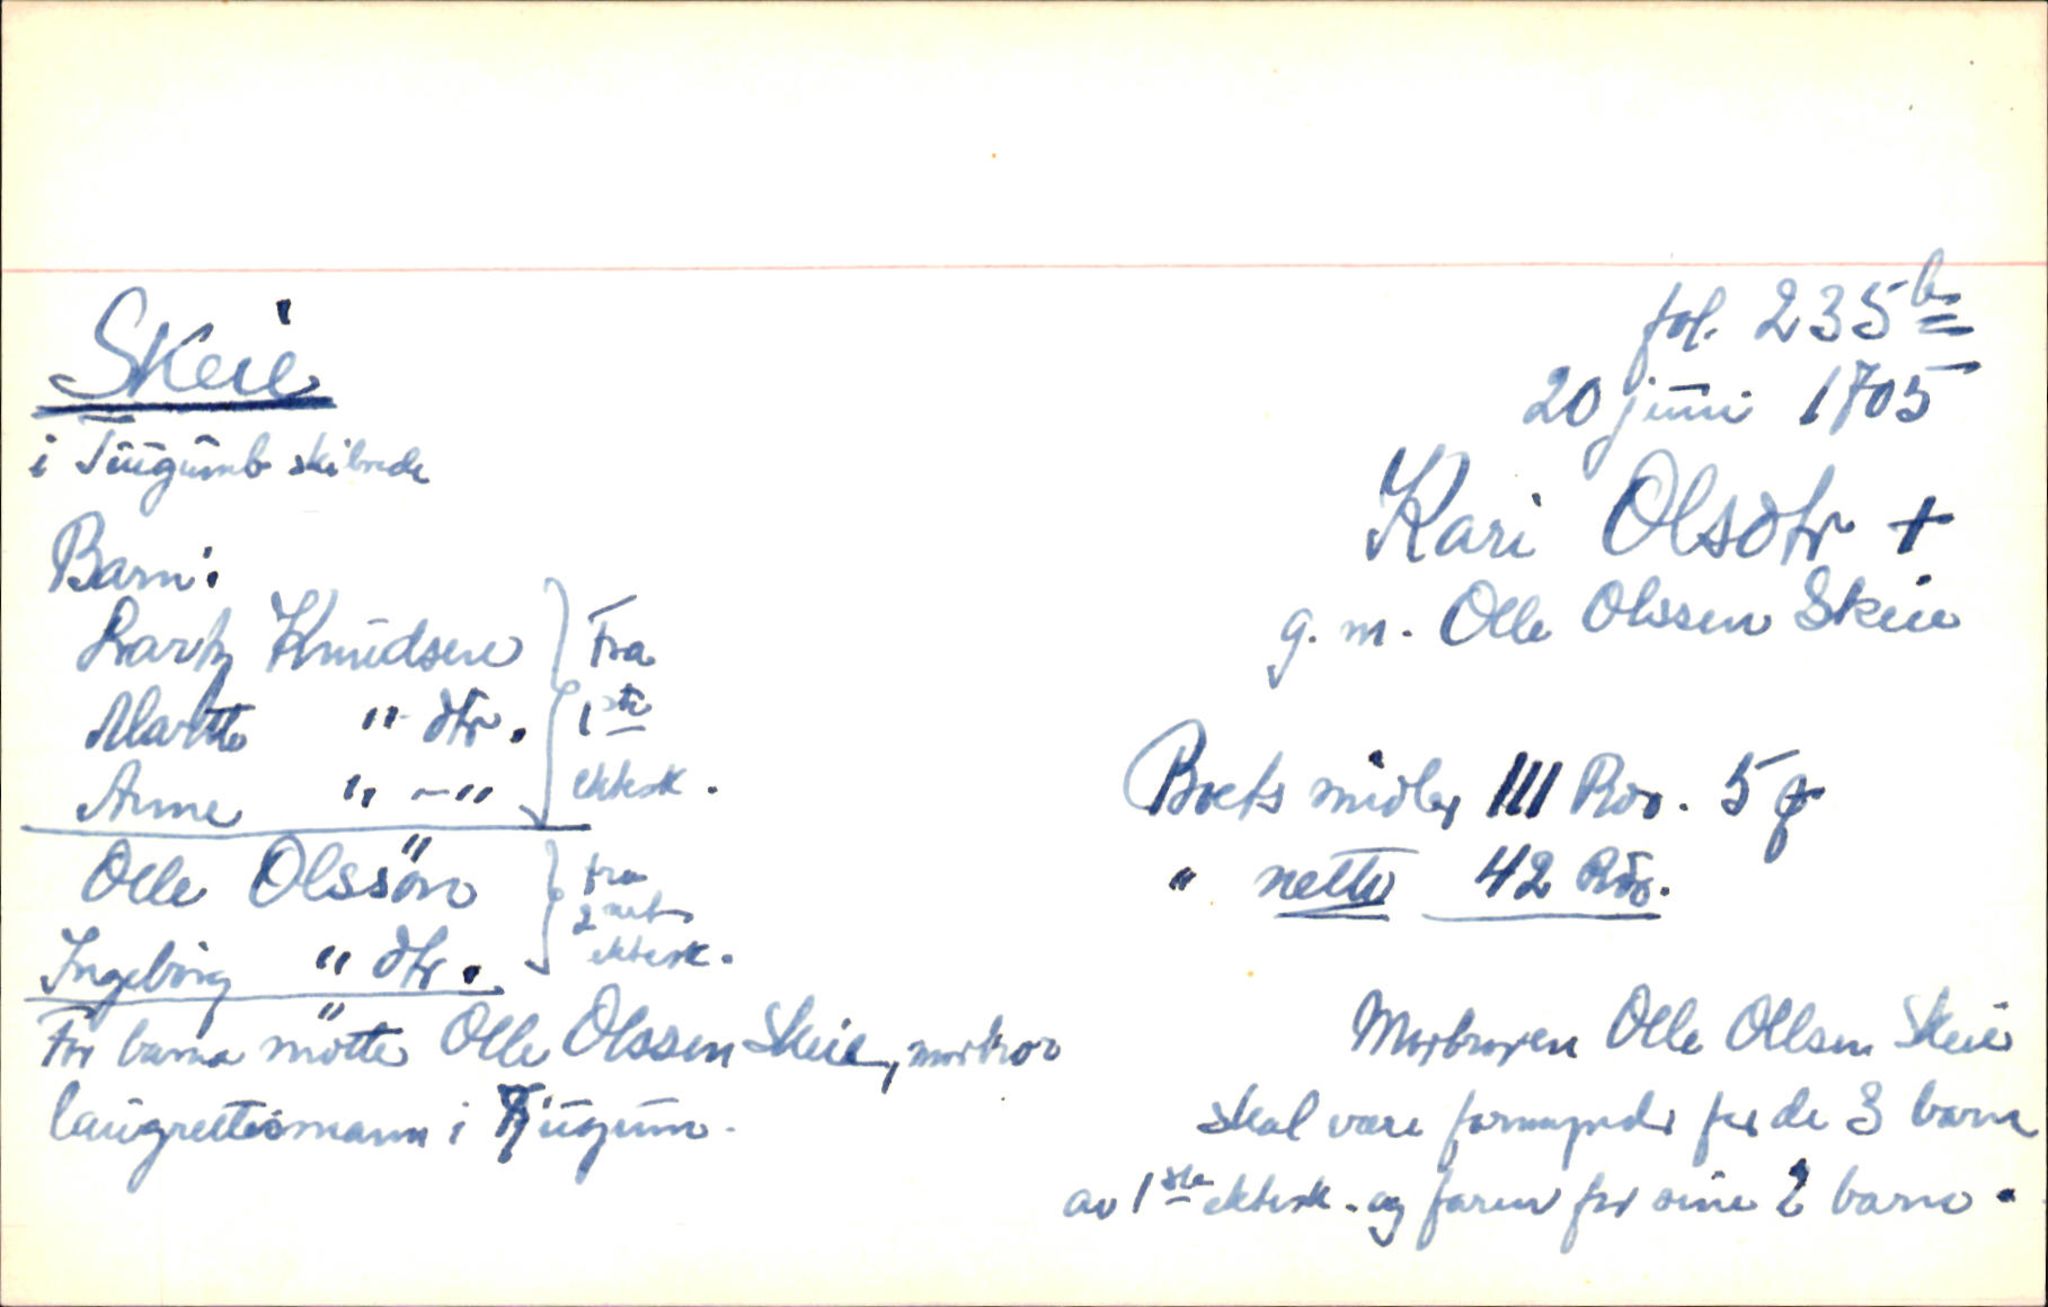 Skeie
i Tiugumb skibrede
fol. 235 b
20 juni 1705
Kari Olsdtr +
g. m. Olle Olssen Skeie
Barn:
Lartz Knudsen } Fra
Marthe " dtr. } 1ste
Anne " -" } ektesk.
Olle Olssön } fra
2net
Ingeborg " dtr. } ektesk.
For barna mötte Olle Olssen Skeie, morbror
laugrettesmann i Tjugum.
Boets midler 111 Rdr. 5
" netto 42 Rdr.
Morbroren Olle Ollsen Skeie
skal være formynder for de 3 barn
av 1ste ektesk. og faren for sine 2 barn.